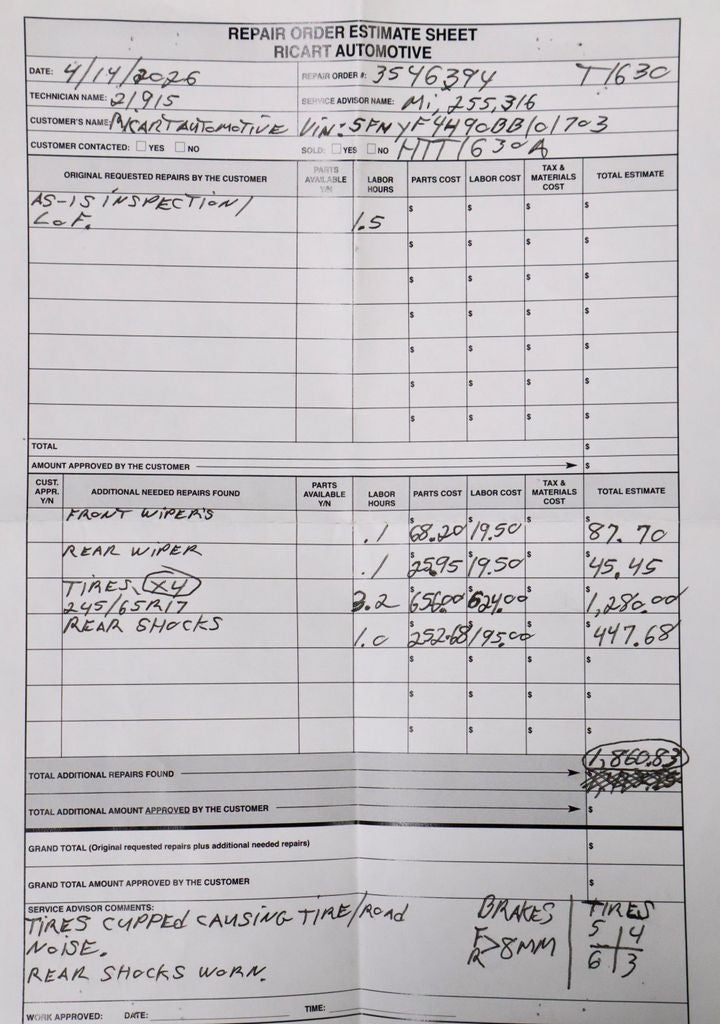 REPAIR ORDER ESTIMATE SHEET
RICART AUTOMOTIVE
DATE: 4/14/2026 REPAIR ORDER #: 3546394 T1630
TECHNICIAN NAME: 21915 SERVICE ADVISOR NAME: Mi, 255,316
CUSTOMER'S NAME: RICART AUTOMOTIVE VIN: 5FNYF4490BB101703
CUSTOMER CONTACTED: YES NO SOLD: YES NO HTT1630A
ORIGINAL REQUESTED REPAIRS BY THE CUSTOMER PARTS AVAILABLE Y/N LABOR HOURS PARTS COST LABOR COST TAX & MATERIALS COST TOTAL ESTIMATE
AS-IS INSPECTION/ $ $ $ $
L.O.F. 1.5
$ $ $ $
$ $ $ $
$ $ $ $
$ $ $ $
$ $ $ $
$ $ $ $
TOTAL $
AMOUNT APPROVED BY THE CUSTOMER $
CUST. APPR. Y/N ADDITIONAL NEEDED REPAIRS FOUND PARTS AVAILABLE Y/N LABOR HOURS PARTS COST LABOR COST TAX & MATERIALS COST TOTAL ESTIMATE
FRONT WIPER'S .1 $68.20 $19.50 $ $87.70
REAR WIPER .1 $25.95 $19.50 $ $45.45
TIRES X4
245/65R17 3.2 $656.00 $624.00 $ $1,280.00
REAR SHOCKS 1.0 $252.68 $195.00 $ $447.68
$ $ $ $
$ $ $ $
$ $ $ $
1,860.83
TOTAL ADDITIONAL REPAIRS FOUND
TOTAL ADDITIONAL AMOUNT APPROVED BY THE CUSTOMER $
GRAND TOTAL (Original requested repairs plus additional needed repairs) $
GRAND TOTAL AMOUNT APPROVED BY THE CUSTOMER $
SERVICE ADVISOR COMMENTS:
TIRES CUPPED CAUSING TIRE/ROAD
NOISE.
REAR SHOCKS WORN.
BRAKES
F
R >8MM
TIRES
5 4
6 3
WORK APPROVED: DATE: TIME: